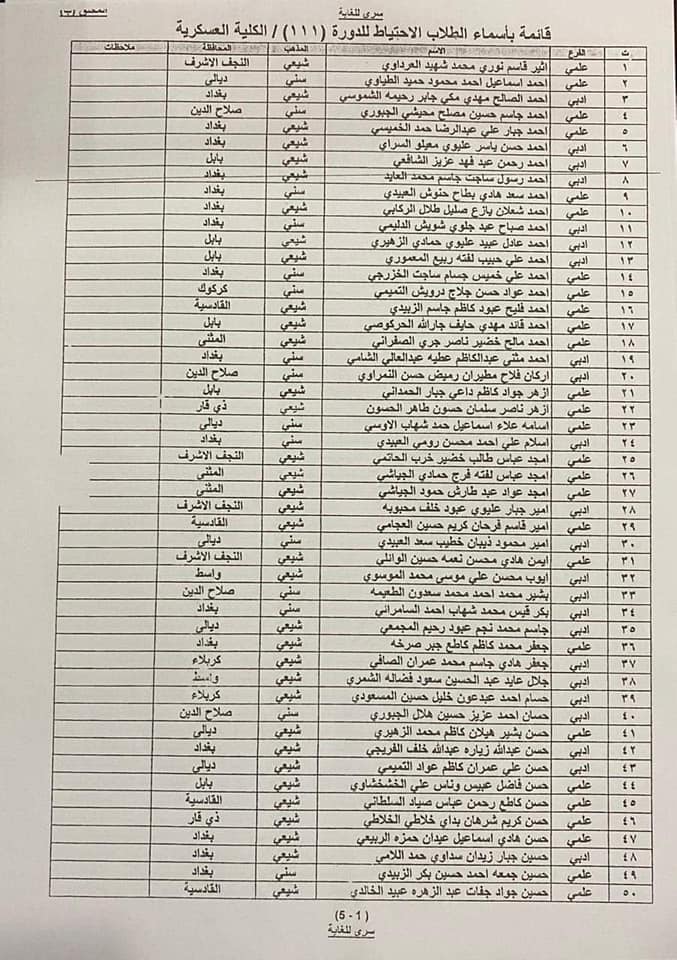 سري للغاية
الملحق (ب)
قائمة بأسماء الطلاب الاحتياط للدورة (١١١) / الكلية العسكرية
ت الفرع الاسم المذهب المحافظة ملاحظات
١ علمي اثير قاسم نوري محمد شهيد العرداوي شيعي النجف الاشرف
٢ علمي احمد اسماعيل احمد محمود حميد الطياوي سني ديالى
٣ ادبي احمد الصالح مهدي مكي جابر رحيمه الشموسي شيعي بغداد
٤ علمي احمد جاسم حسين مصلح محيشي الجبوري سني صلاح الدين
٥ علمي احمد جبار علي عبدالرضا حمد الخميسي شيعي بغداد
٦ ادبي احمد حسن ياسر عليوي معيلو السراي شيعي بغداد
٧ ادبي احمد رحمن عبد فهد عزيز الشافعي شيعي بابل
٨ ادبي احمد رسول ساجت جاسم محمد العايد شيعي بغداد
٩ علمي احمد سعد هادي بطاح حنوش العبيدي سني بغداد
١٠ علمي احمد شعلان بازع صليل طلال الركابي شيعي بغداد
١١ ادبي احمد صباح عبد جلوي شويش الدليمي سني بغداد
١٢ ادبي احمد عادل عبيد عليوي حمادي الزهيري شيعي بابل
١٣ ادبي احمد علي حبيب لفته ربيع المعموري شيعي بابل
١٤ علمي احمد علي خميس جسام ساجت الخزرجي سني بغداد
١٥ علمي احمد عواد حسن جلاج درويش التميمي سني كركوك
١٦ علمي احمد فليح عبود كاظم جاسم الزبيدي شيعي القادسية
١٧ علمي احمد قائد مهدي حايف جارالله الحركوصي شيعي بابل
١٨ علمي احمد مالح خضير ناصر جري الصفراني شيعي المثنى
١٩ ادبي احمد مثنى عبدالكاظم عطيه عبدالعالي الشامي سني بغداد
٢٠ ادبي اركان فلاح مطيران رميض حسن النمراوي سني صلاح الدين
٢١ علمي ازهر جواد كاظم داعي جبار الحمداني شيعي بابل
٢٢ علمي ازهر ناصر سلمان حسون طاهر الحسون شيعي ذي قار
٢٣ علمي اسامه علاء اسماعيل حمد شهاب الاوسي سني ديالى
٢٤ ادبي اسلام علي احمد محسن رومي العبيدي سني بغداد
٢٥ علمي امجد عباس طالب خضير خرب الحاتمي شيعي النجف الاشرف
٢٦ علمي امجد عباس لفته فرج حمادي الجياشي شيعي المثنى
٢٧ علمي امجد عواد عبد طارش حمود الجياشي شيعي المثنى
٢٨ ادبي امير جبار عليوي عبود خلف محبوبه شيعي النجف الاشرف
٢٩ علمي امير قاسم فرحان كريم حسين العجامي شيعي القادسية
٣٠ ادبي امير محمود ذيبان خطيب سعد العبيدي سني ديالى
٣١ علمي ايمن هادي محسن نعمه حسين الوائلي شيعي النجف الاشرف
٣٢ ادبي ايوب محسن علي موسى محمد الموسوي شيعي واسط
٣٣ ادبي بشير محمد احمد محمد سعدون الطعيمه سني صلاح الدين
٣٤ ادبي بكر قيس محمد شهاب احمد السامرائي سني بغداد
٣٥ ادبي جاسم محمد نجم عبود رحيم المجمعي شيعي ديالى
٣٦ علمي جعفر محمد كاظم كاطع جبر صرخه شيعي بغداد
٣٧ ادبي جعفر هادي جاسم محمد عمران الصافي شيعي كربلاء
٣٨ ادبي جلال عايد عبد الحسين سعود فضاله الشمري شيعي واسط
٣٩ ادبي حسام احمد عبدعون خليل حسين المسعودي شيعي كربلاء
٤٠ ادبي حسان احمد عزيز حسين هلال الجبوري سني صلاح الدين
٤١ علمي حسن بشير هيلان كاظم محمد الزهيري شيعي ديالى
٤٢ ادبي حسن عبدالله زياره عبدالله خلف الفريجي شيعي بغداد
٤٣ ادبي حسن علي عمران كاظم عواد التميمي شيعي ديالى
٤٤ علمي حسن فاضل عبيس وناس علي الخشخشاوي شيعي بابل
٤٥ علمي حسن كاطع رحمن عباس صياد السلطاني شيعي القادسية
٤٦ علمي حسن كريم شرهان بداي خلاطي الخلاطي شيعي ذي قار
٤٧ علمي حسن هادي اسماعيل عيدان حمزه الربيعي شيعي بغداد
٤٨ ادبي حسين جبار زيدان سداوي حمد اللامي شيعي بغداد
٤٩ علمي حسين جمعه احمد حسين بكر الزبيدي سني بغداد
٥٠ علمي حسين جواد جفات عبد الزهره عبيد الخالدي شيعي القادسية
(5 - 1)
سري للغاية